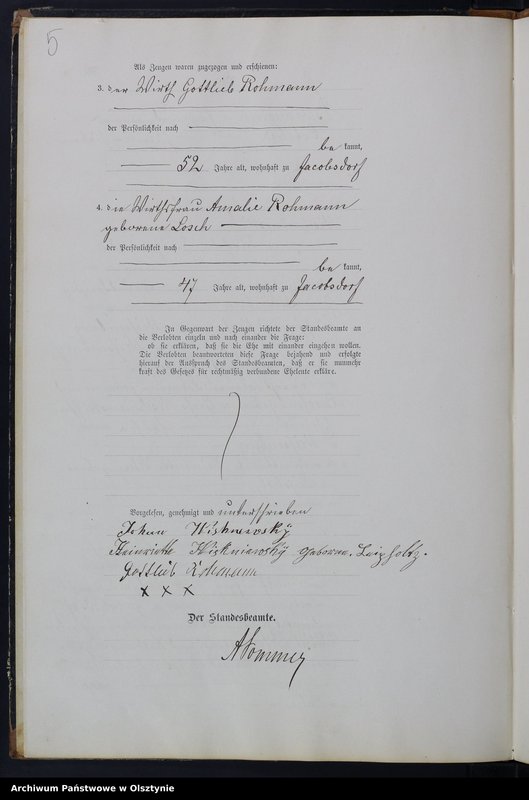 5
Als Zeugen waren zugezogen und erschienen:
3. der Wirth Gottlieb Rohmann
der Persönlichkeit nach
be kannt,
52 Jahre alt, wohnhaft zu Jacobsdorf
4. die Wirthsfrau Amalie Rohmann
geborene Losch
der Persönlichkeit nach
be kannt,
47 Jahre alt, wohnhaft zu Jacobsdorf
In Gegenwart der Zeugen richtete der Standesbeamte an
die Verlobten einzeln und nach einander die Frage:
ob sie erklären, daß sie die Ehe mit einander eingehen wollen.
Die Verlobten beantworteten diese Frage bejahend und erfolgte
hierauf der Ausspruch des Standesbeamten, daß er sie nunmehr
kraft des Gesetzes für rechtmäßig verbundene Eheleute erkläre.
Vorgelesen, genehmigt und unterschrieben
Johan Wishniewsky
Heinriette geboren.
Gottlieb Rohmann
x x x
Der Standesbeamte.
Archiwum Państwowe w Olsztynie